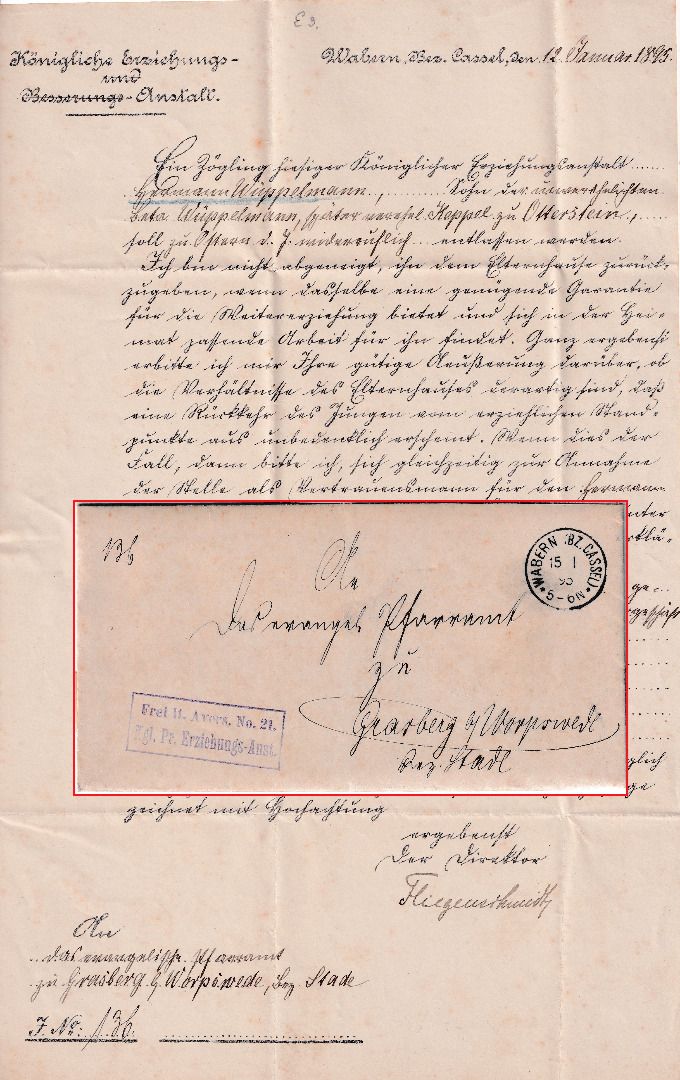 E 3.
Königliche Erziehungs-
und
Besserungs-Anstalt.
Wabern, Bez. Cassel, den 12. Januar 1895.
Ein Zögling hiesiger Königlicher Erziehungsanstalt
Hermann Wüppelmann, Sohn der unverehelichten
Beta Wüppelmann, später verehel. Keppel zu Otterstein,
soll zu Ostern d. J. widerruflich entlassen werden.
Ich bin nicht abgeneigt, ihn dem Elternhause zurück-
zugeben, wenn dasselbe eine genügende Garantie
für die Weitererziehung bietet und sich in der Hei-
mat passende Arbeit für ihn findet. Ganz ergebenst
erbitte ich mir Ihre gütige Aeußerung darüber, ob
die Verhältnisse des Elternhauses derartig sind, daß
eine Rückkehr des Jungen vom erziehlichen Stand-
punkte aus unbedenklich erscheint. Wenn dies der
Fall, dann bitte ich, sich gleichzeitig zur Annahme
der Stelle als Vertrauensmann für den Hermann
136
An
das evangel. Pfarramt
zu
Grasberg b/Worpswede
Bez. Stade
WABERN (BZ. CASSEL)
15 1
95
5-6N
Frei lt. Avers. No. 21.
Kgl. Pr. Erziehungs-Anst.
zeichnet mit Hochachtung
ergebenst
Der Direktor
Fliegenschmidt
An
das evangelische Pfarramt
zu Grasberg b/Worpswede, Bez. Stade
J. No: 136.